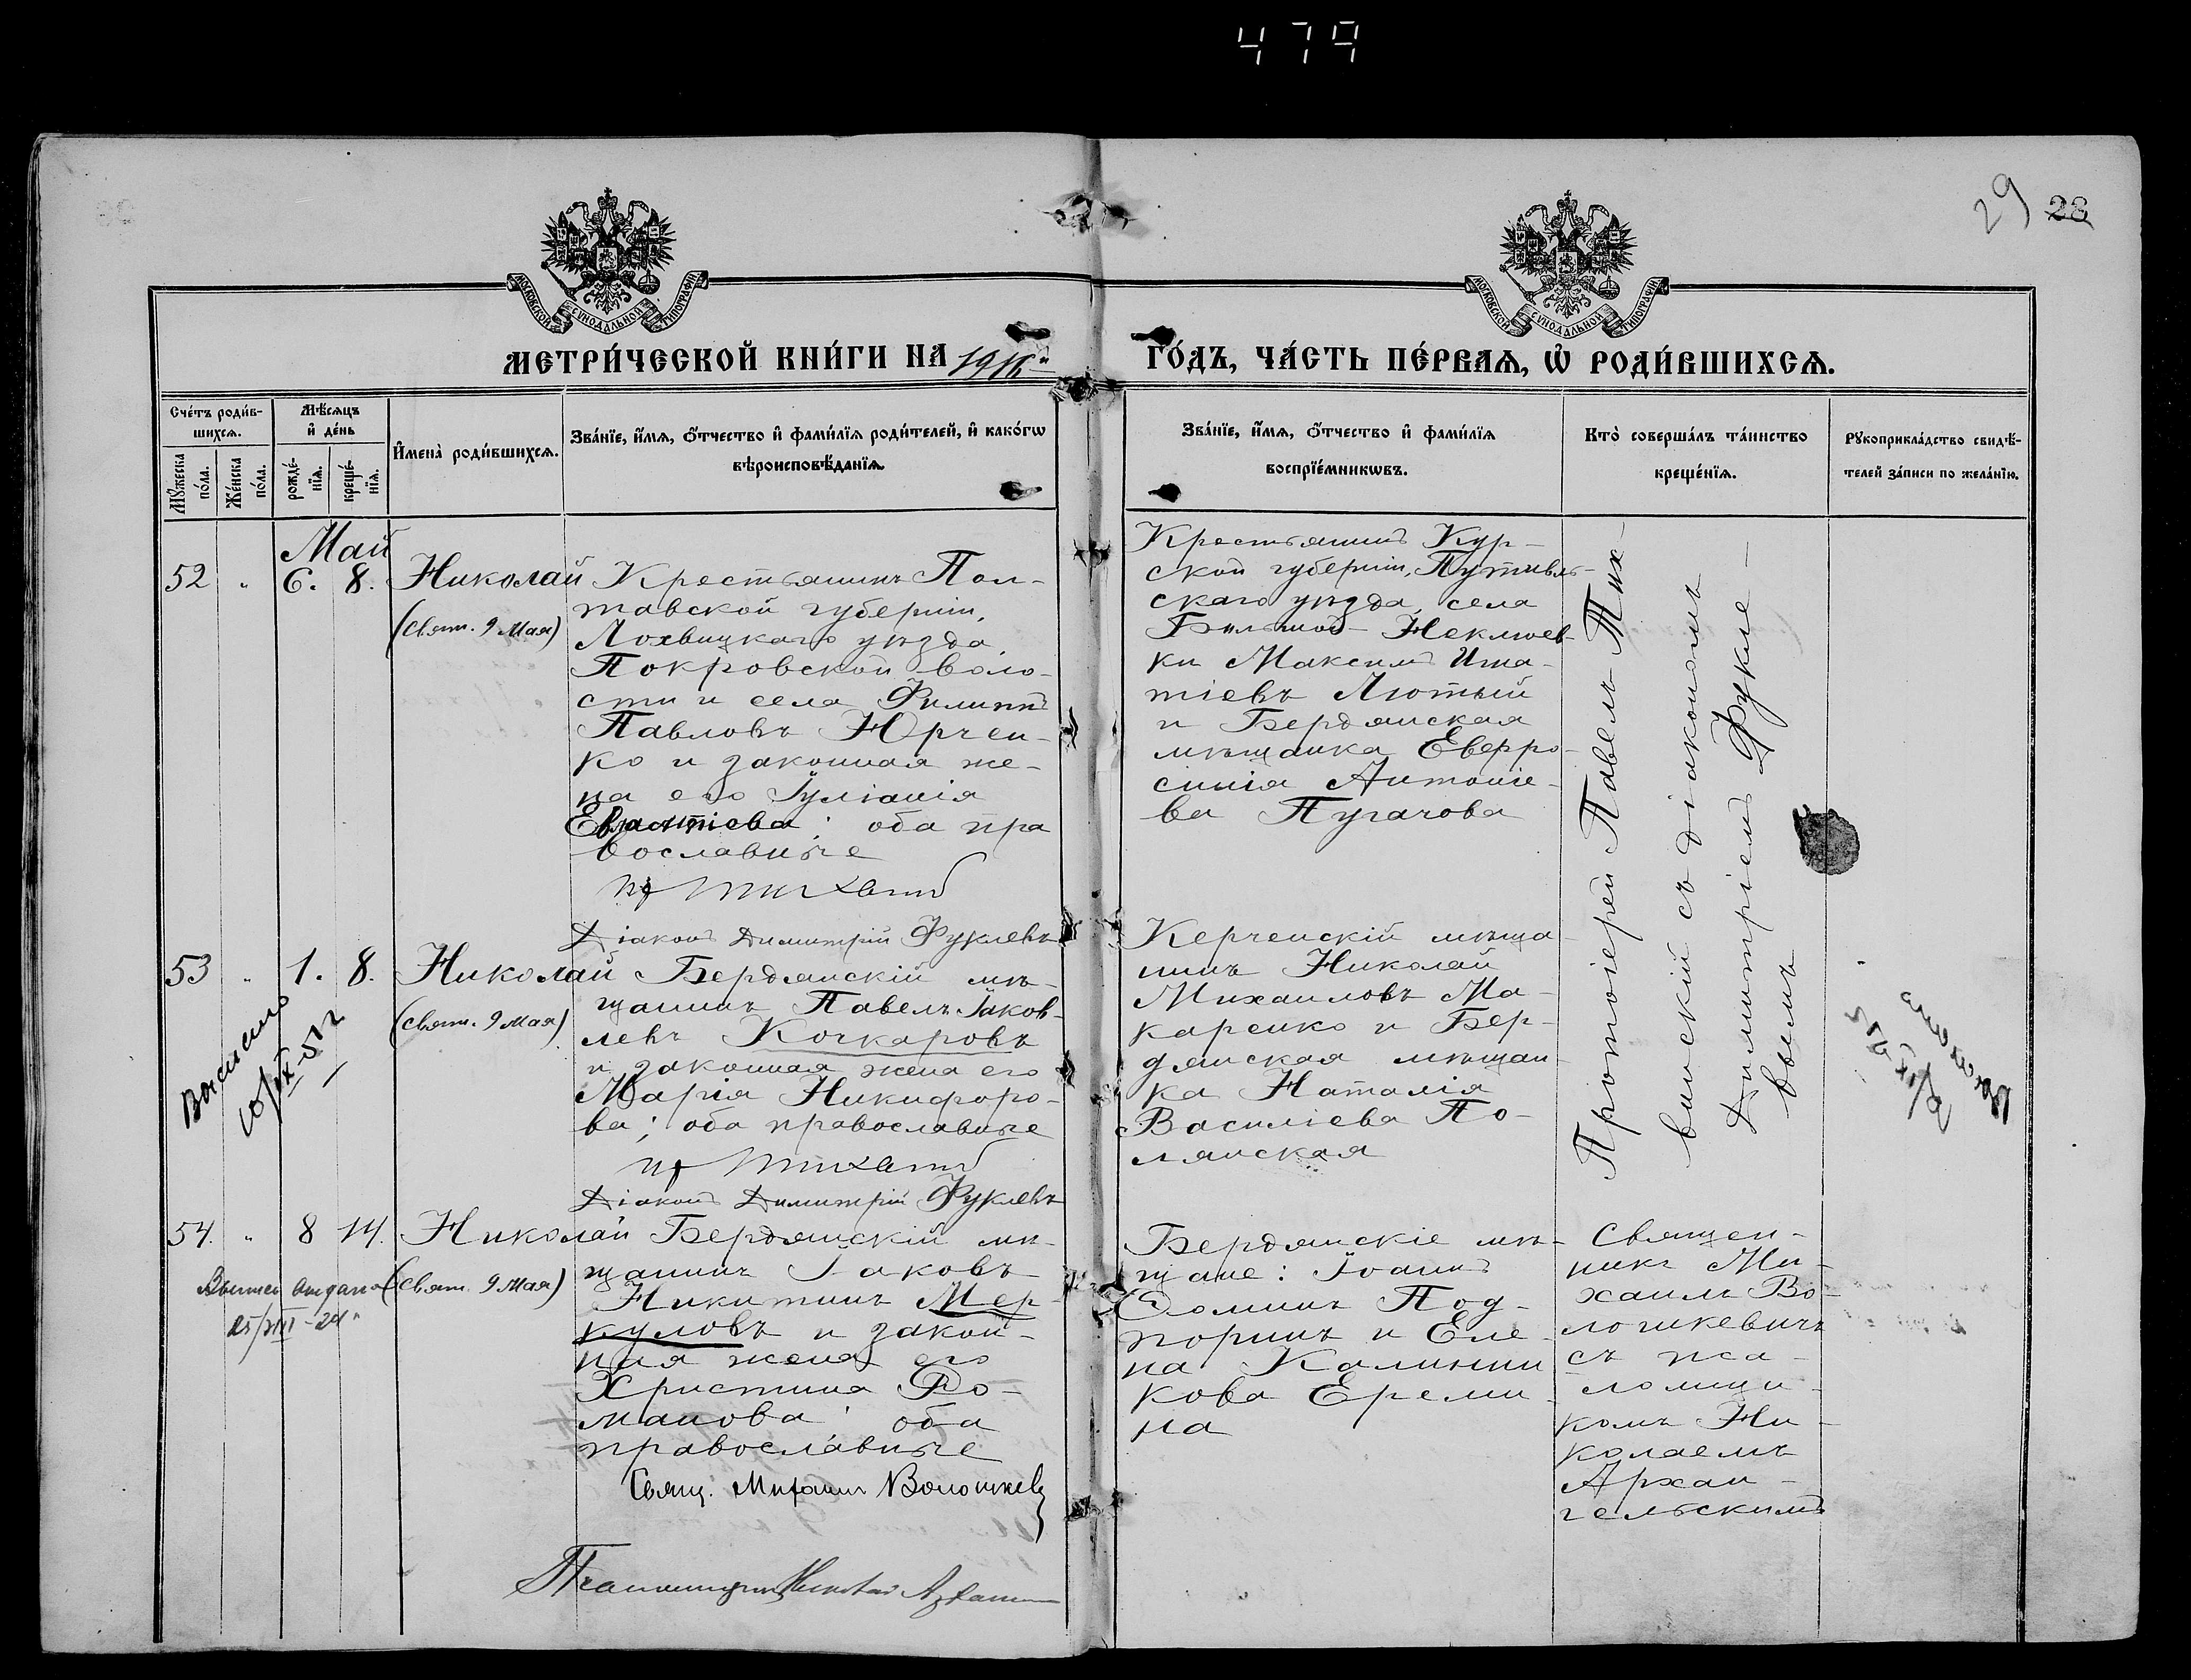 479
29 28
МОСКОВСКОЙ СѴНОДАЛЬНОЙ ТИПОГРАФІИ
МОСКОВСКОЙ СѴНОДАЛЬНОЙ ТИПОГРАФІИ
МЕТРИ́ЧЕСКОЙ КНИ́ГИ НА
ГО́ДЪ, ЧА́СТЬ ПЕ́РВАѦ, Ѡ РОДИ́ВШИХСѦ.
Сче́тъ роди́в-
шихсѧ.
Мѹ́жеска
по́ла.
Же́нска
по́ла.
Мѣ́сѧцъ
и҆ де́нь
рожде́-
нїѧ.
креще́-
нїѧ.
И҆мена̀ роди́вшихсѧ.
Зва́нїе, и҆́мѧ, ѻ҆́тчество и҆ фами́лїѧ роди́телей, и҆ како́гѡ
вѣроисповѣ́данїѧ.
Зва́нїе, и҆́мѧ, ѻ҆́тчество и҆ фами́лїѧ
воспрїе́мникѡвъ.
Кто̀ соверша́лъ та́инство
креще́нїѧ.
Рꙋкоприкла́дство свидѣ́-
телей за́писи по жела́нїю.
Май
52 " 6. 8. Николай
(свят. 9 Мая)
Крестьянинъ Пол-
тавской губерніи,
Лохвицкаго уѣзда,
Покровской воло-
сти и села Филиппъ
Павловъ Юрчен-
ко и законная же-
на его Іуліанія
оба пра
вославные
Діаконъ Димитрій Фуклевъ
Крестьянинъ Кур-
ской губерніи, Путивль-
скаго уѣзда, села
Большой Неклюев-
ки Максимъ Игна-
тіевъ Лютый
и Бердянская
мѣщанка Евфро-
синія Антоніе-
ва Пугачова
Протоіерей Павелъ Тих-
винскій съ діакономъ
Димитріемъ Фукле-
вымъ
53 " 1. 8. Николай
(свят. 9 Мая)
Выписано
10/IX-51г
Бердянскій мѣ-
щанинъ Павелъ Іаков-
левъ Кочкаровъ
и законная жена его
Марія Никифоро-
ва; оба православные
Діаконъ Димитрій Фуклевъ
Керченскій мѣща-
нинъ Николай
Михаиловъ Ма-
каренко и Бер-
дянская мѣщан-
ка Наталія
Василіева По-
лянская
54. " 8 14. Николай
(свят. 9 Мая)
25/VIII-24
Бердянскій мѣ-
щанинъ Іаковъ
Никитинъ Мер-
куловъ и закон-
ная жена его
Христина Ро-
манова; оба
православные
Свящ. Михаилъ Волошкевичъ
Псаломщикъ Николай
Бердянскіе мѣ-
щане: Іоаннъ
Под-
горинъ и Еле-
на Калинни
кова Ереми-
на
Священ-
никъ Ми-
хаилъ Во-
лошкевичъ
съ пса-
ломщи-
комъ Ни-
колаемъ
Архан-
гельскимъ